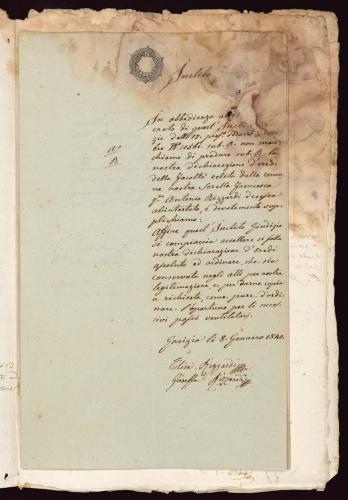 Inclito
In obbedienza al
creto di quest' Inclito
zio dell' 17. pros. 
bre N. 10561. sub. A. non man
chiamo di produrre sub. B. la
nostra dichiarazione d'eredi
della facoltà relitta dalla comu
ne nostra Sorella Francesca
q.m Antonio Rizzardi decessa
abintestato, e devotamente sup
plichiamo:
Affine quest' Inclito Giudizio
si compiaccia accettare si fatta
nostra dichiarazione d'Eredi
assoluta ed ordinare che sia
conservata negli atti per nostra
legitimazione e per darne copia
a richiesta, come pure d'ordi
nare l'opportuno per li succes
sivi passi ventilatorj.
Gorizia li 8. Gennaro 1840.
Elisa Rizzardi
Giuseppa Rizzardi
A.
B